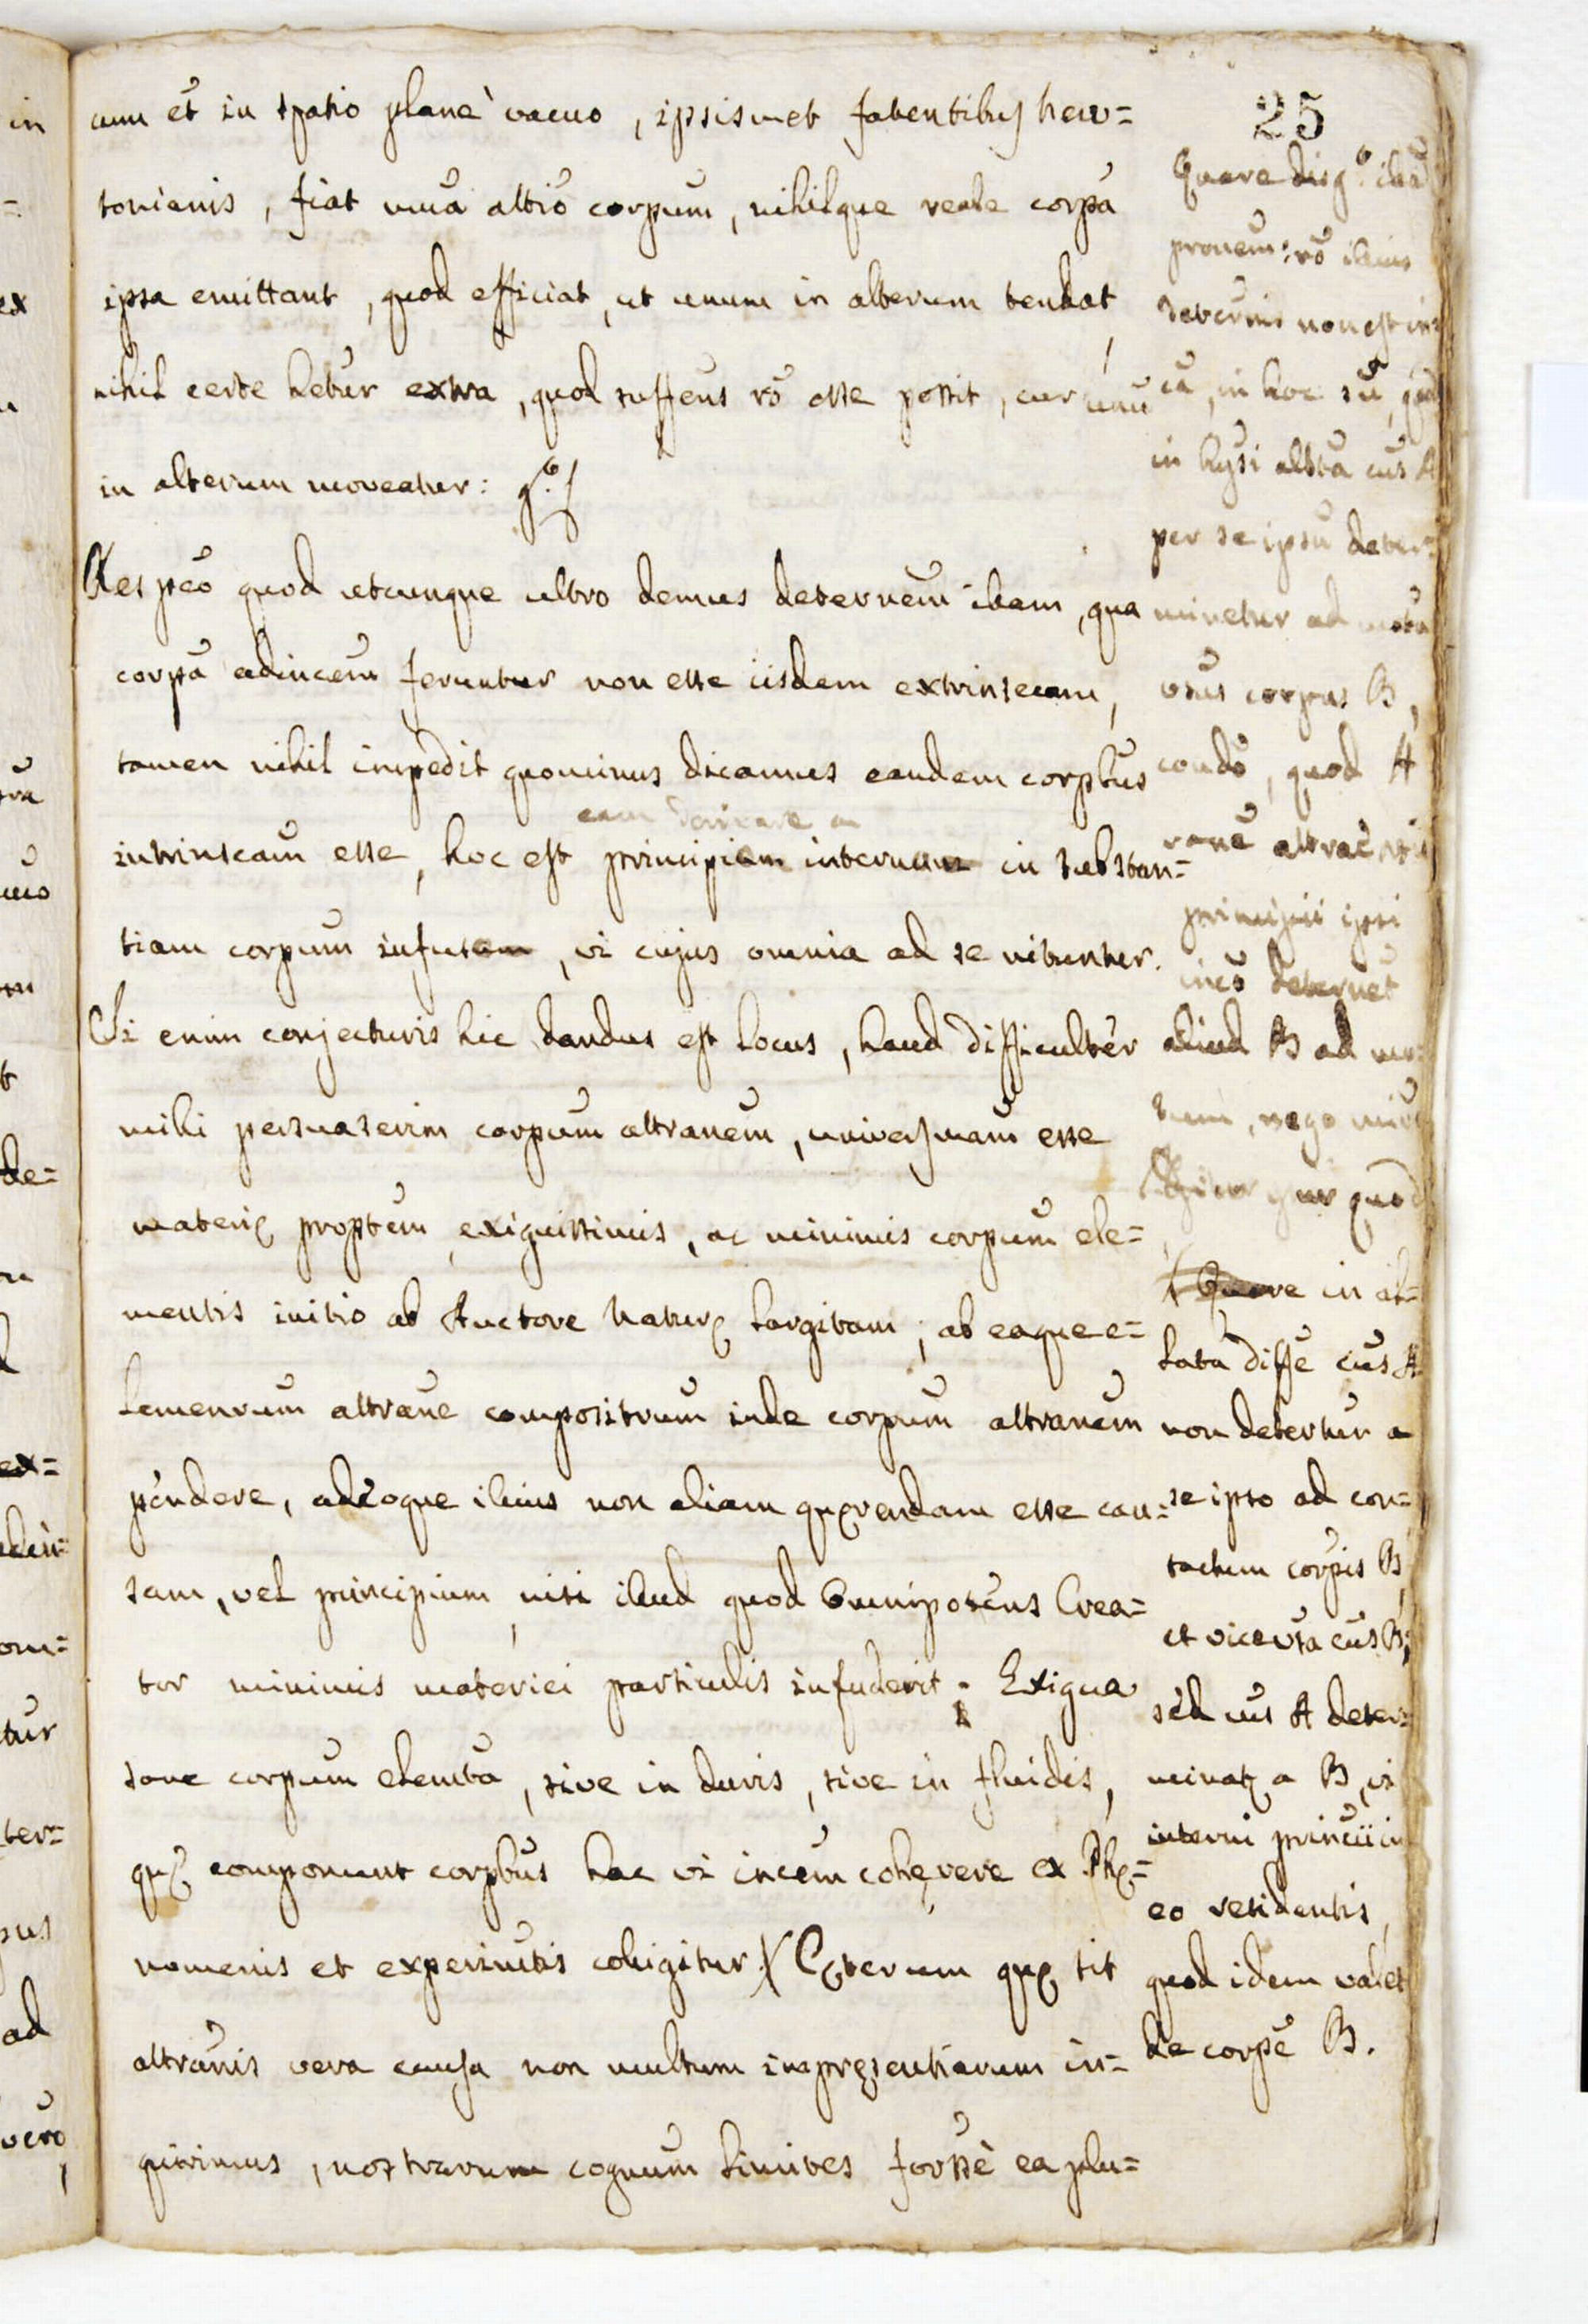 cum et in spatio planè vacuo, ipsismet fatentibus new=
tonianis, fiat mua attrio corpum, nihilque reale corpa
ipsa emittant, quod efficiat, ut unum in alterum tendat,
nihil certe hetur extra, quod suffens ro esse possit, cur unu
in alterum moveatur: gº.
Respeo quod utcunque ultro demus deternem illam, qua
corpa adincem feruntur non esse iisdem extrinsecam,
tamen nihil impedit quominus dicamus eandem corpbus
eam
intrinscam esse, hoc est principium internum in substan=
tiam corpum infusam, vi cujus omnia ad se nituntur.
Si enim conjecturis hic dandus est locus, haud difficultèr
mihi persuaserim corpum attranem, universmam esse
materię proptem exiguissimis, ac minimis corpum ele=
mentis initio ab Auctore Naturę largitam; ab eaque e=
lemenrum attrane compositrum inde corpum attranem
pendere, adeoque illius non aliam quęrendam esse cau=
sam, vel principium nisi illud quod Omnipotens Crea=
tor minimis materiei particulis infuderit: Exigua
sane corpum elemta, sive in duris, sive in fluidis,
quę componunt corpbus hac vi incem cohęrere ex Phę=
nomenis et experimtis colligitur. X Cęterum quę sit
attranis vera causa non multum impręsentiarum in=
quirimus, nostrarum cognum limites forssè ea plu=
25
Quare disgº illa
pronem: ro illius
deternis non est in
ea, in hoc su, quod
in hysi allata cus A
per se ipsu deter=
minetur ad motu
vsus corpus B,
condo, quod A
rane attrac
principii ipsi
inco deternet
aliud B ad mo=
tum, nego
quod
X Quare in al=
lata diffe cus A
non detertur a
se ipso ad con=
tactum corpis B,
et vicevsa cus B;
sed cus A deter=
minatę a B, vi
interni princii in
eo residentis,
quod idem valet
de corpe B.